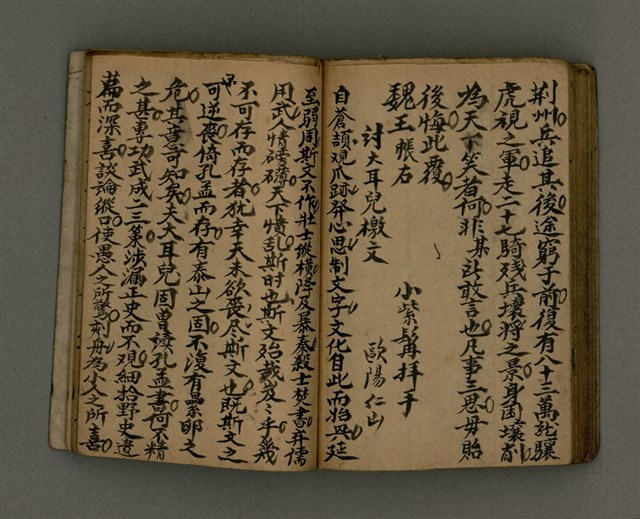 荆州兵追其後途窮于前復有八十三萬能驤
虎視之軍走二十七騎殘兵壞將之景身困壤削
為天下笑者何非某所敢言也凡事三思毋貽
後悔此覆
魏王帳右
小紫髯拜手
討大耳兒檄文
歐陽仁山
自蒼頡觀爪跡發心思制文字文化自此而始興延
至弱周斯文不作壯士縱橫降及暴秦殺士焚書弃儒
用武人情磽礴天下憤乱斯时也斯文殆哉岌々乎幾
不可存而存者犹幸天未欲喪尽斯文也既斯文之
不可逆喪倚孔孟而存有泰山之固不復有累卵之
危其意可知矣夫大耳兒固曾讀孔孟書何不精
之其專功武成二三策涉漏正史而不观細拾野史遺
萹而深喜談論縱口使愚人之所驚刺毋為小人之所喜